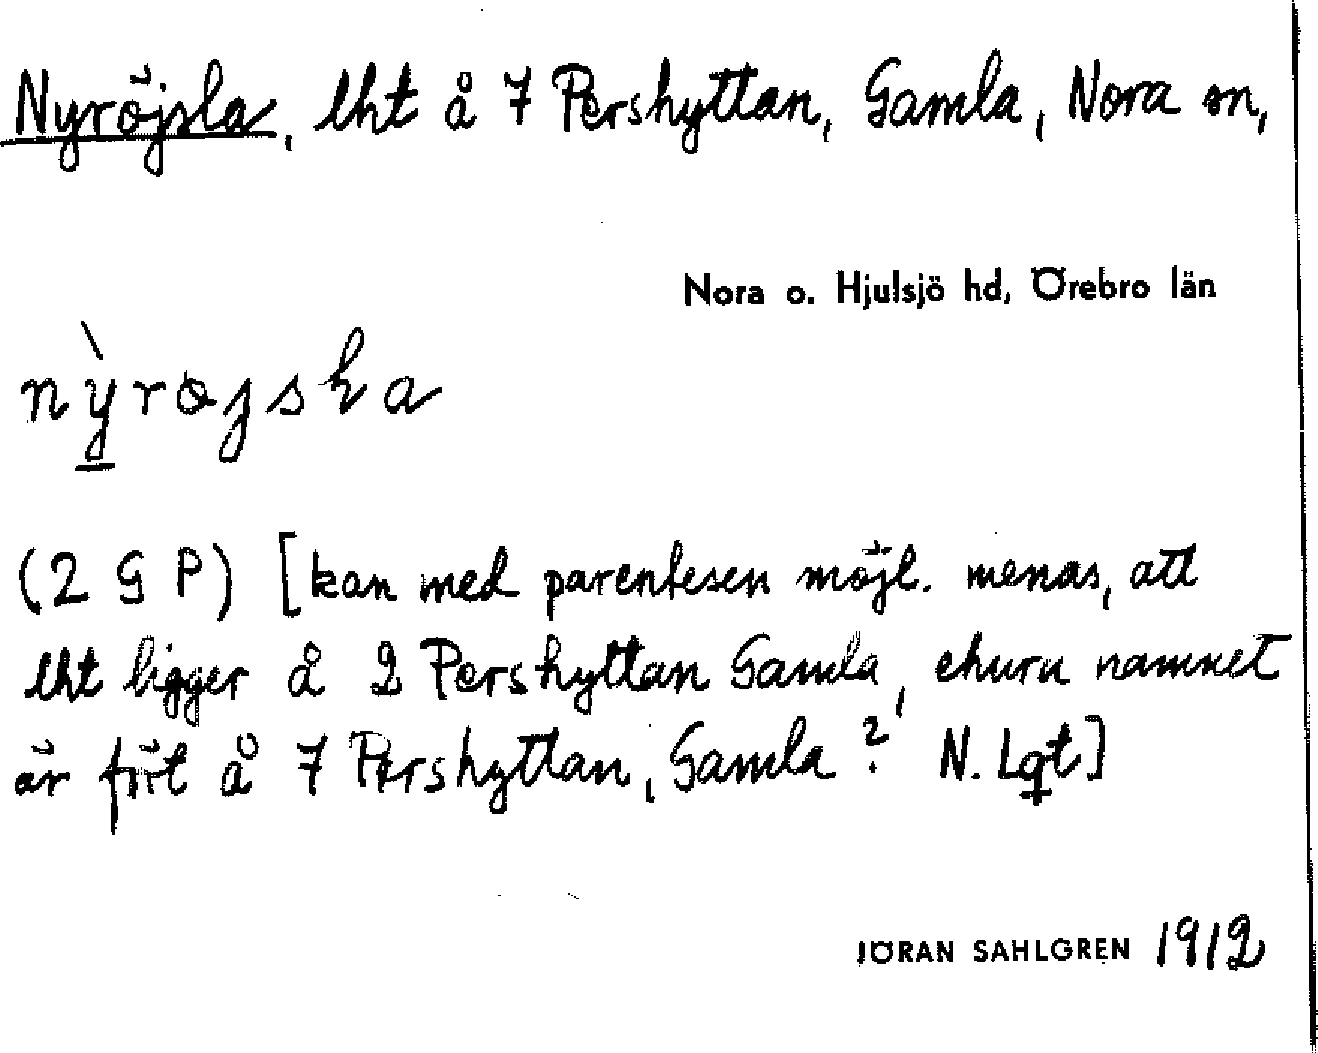 Nyröjsla, lht å 7 Pershyttan, Gamla, Nora sn,
Nora o. Hjulsjö hd, Örebro län
(2 G P) [kan med parentesen möjl. menas, att
lht ligger å 2 Pershyttan Gamla, ehuru namnet
är fört å 7 Pershyttan, Gamla? N. Lqt]
JÖRAN SAHLGREN 1912